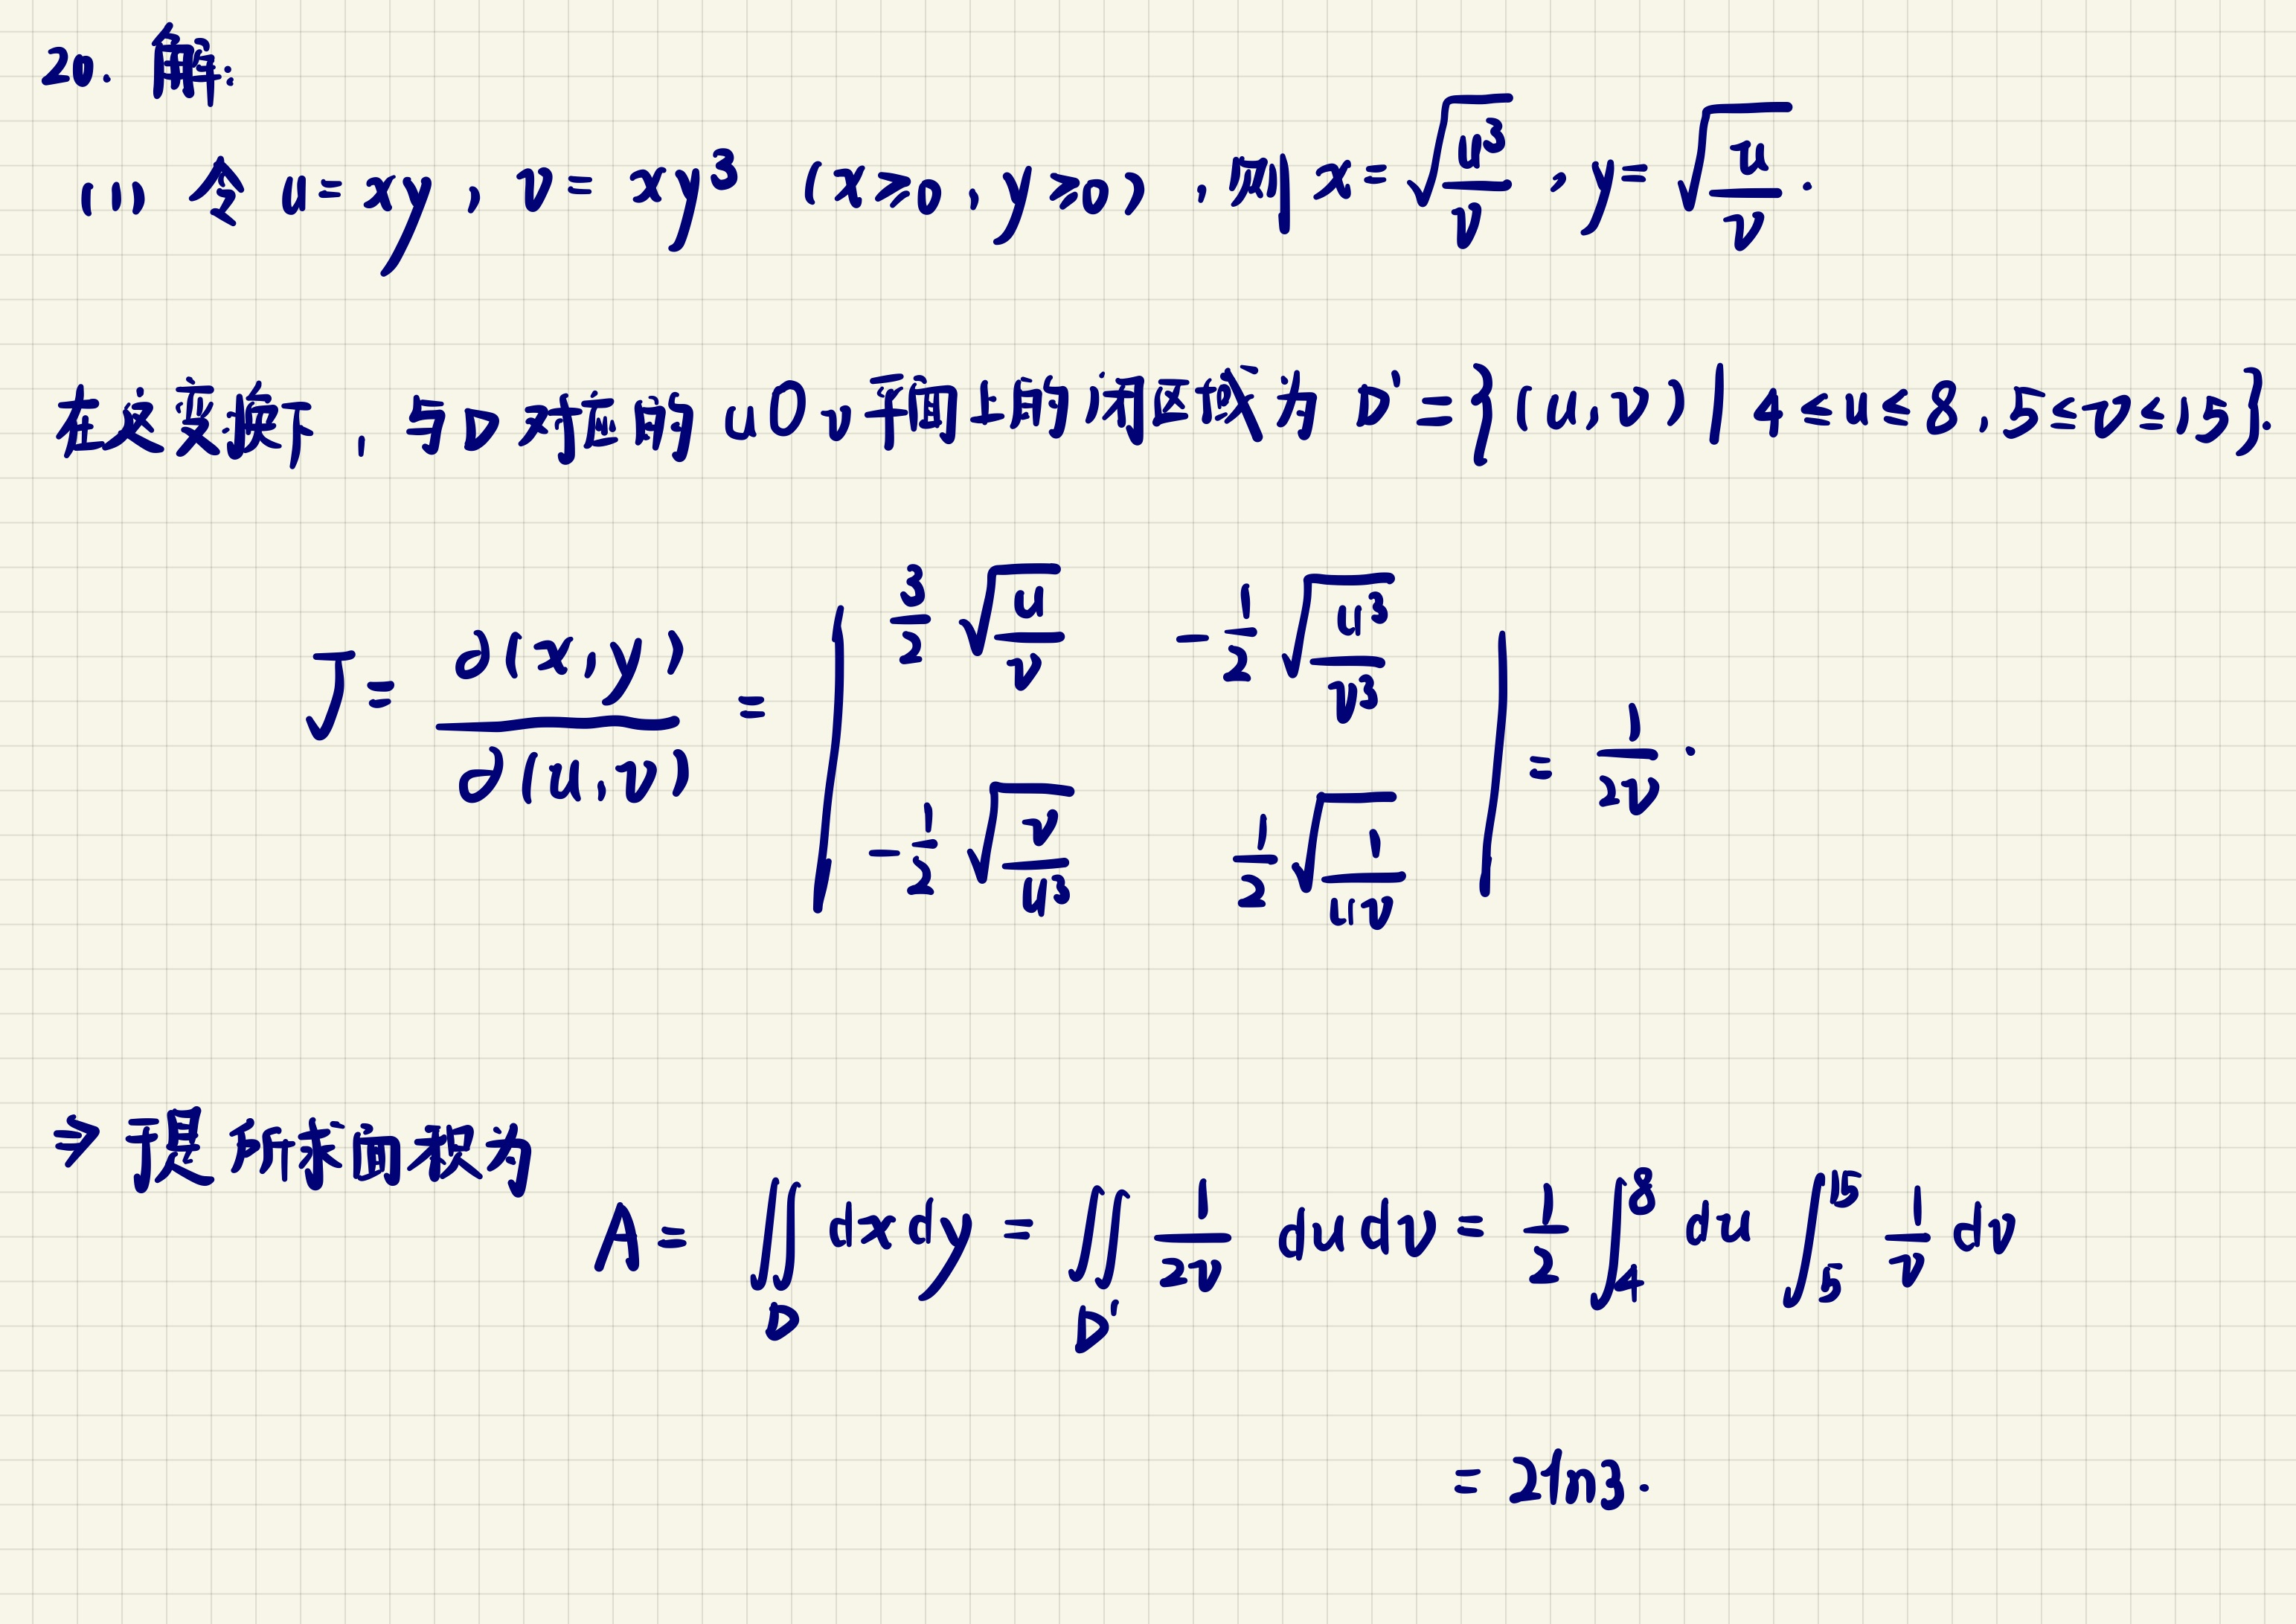 20. 解:
(1) 令 u = xy, v = xy³ (x≥0, y≥0), 则 x = √(u³/v), y = √(u/v).
在这变换下, 与D对应的 uOv 平面上的闭区域为 D' = {(u,v) | 4≤u≤8, 5≤v≤15}.
J = ∂(x,y)/∂(u,v) = | 3/2 √(u/v)  -1/2 √(u³/v³) ; -1/2 √(v/u³)  1/2 √(1/uv) | = 1/2v.
⇒ 于是所求面积为
A = ∬_D dxdy = ∬_D' 1/2v dudv = 1/2 ∫₄⁸ du ∫₅¹⁵ 1/v dv
= 2ln3.